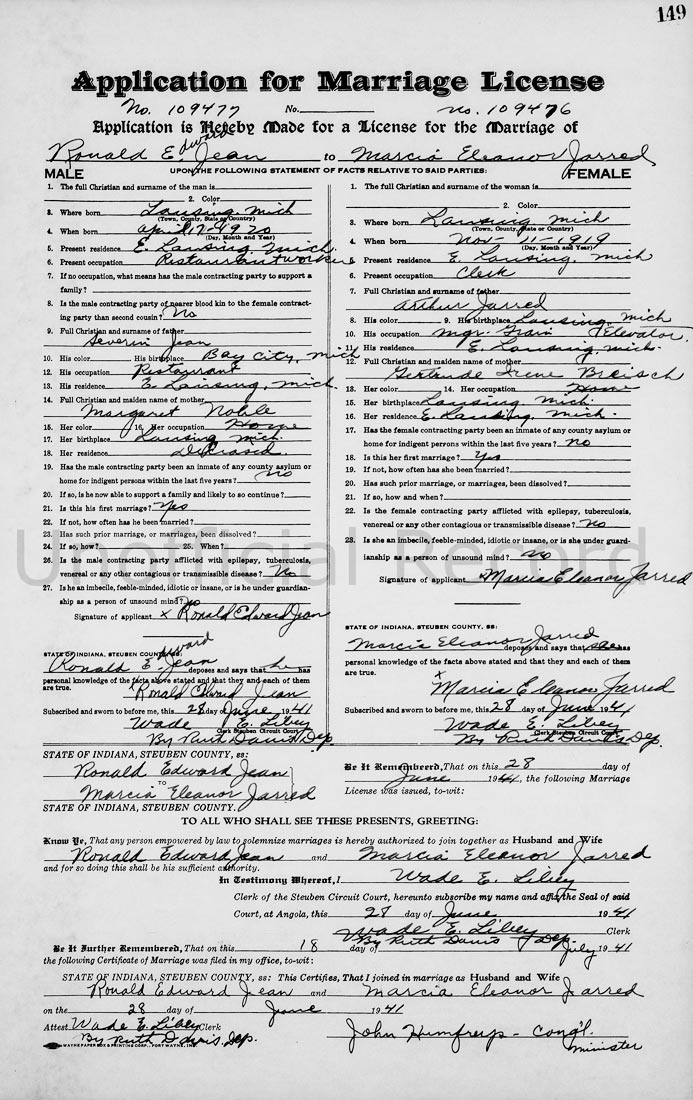 149
Application for Marriage License
No. 109477 No. no. 109476
Application is Hereby Made for a License for the Marriage of
Ronald E. Edward Jean to Marcia Eleanor Jarred
MALE UPON THE FOLLOWING STATEMENT OF FACTS RELATIVE TO SAID PARTIES: FEMALE
1. The full Christian and surname of the man is
2. Color
3. Where born Lansing, Mich
(Town, County, State or Country)
4. When born April 17-1920
(Day, Month and Year)
5. Present residence E. Lansing, Mich.
6. Present occupation Restaurant worker
7. If no occupation, what means has the male contracting party to support a
family?
8. Is the male contracting party of nearer blood kin to the female contract-
ing party than second cousin? No
9. Full Christian and surname of father
Severin Jean
10. His color His birthplace Bay City, Mich
12. His occupation Restaurant
13. His residence E. Lansing, Mich.
14. Full Christian and maiden name of mother
Margaret Noble
15. Her color 16. Her occupation Home
17. Her birthplace Lansing Mich.
18. Her residence Deceased
19. Has the male contracting party been an inmate of any county asylum or
home for indigent persons within the last five years? no
20. If so, is he now able to support a family and likely to so continue?
21. Is this his first marriage? Yes
22. If not, how often has he been married?
23. Has such prior marriage, or marriages, been dissolved?
24. If so, how? 25. When?
26. Is the male contracting party afflicted with epilepsy, tuberculosis,
venereal or any other contagious or transmissible disease? No
27. Is he an imbecile, feeble-minded, idiotic or insane, or is he under guardian-
ship as a person of unsound mind? No
Signature of applicant x Ronald Edward Jean
STATE OF INDIANA, STEUBEN COUNTY, ss:
Ronald E. Edward Jean deposes and says that he has
personal knowledge of the facts above stated and that they and each of them
are true. x Ronald Edward Jean
Subscribed and sworn to before me, this 28 day of June 1941
Wade E. Libey
Clerk Steuben Circuit Court
By Ruth Davis Dep
1. The full Christian and surname of the woman is
2. Color
3. Where born Lansing Mich
(Town, County, State or Country)
4. When born Nov - 11-1919
(Day, Month and Year)
5. Present residence E. Lansing, Mich
6. Present occupation Clerk
7. Full Christian and surname of father
Arthur Jarred
8. His color 9. His birthplace Lansing, Mich
10. His occupation Mgr. Grain Elevator
11. His residence E. Lansing, Mich.
12. Full Christian and maiden name of mother
Gertrude Irene
13. Her color 14. Her occupation Home
15. Her birthplace Lansing, Mich.
16. Her residence E. Lansing, Mich.
17. Has the female contracting party been an inmate of any county asylum or
home for indigent persons within the last five years? no
18. Is this her first marriage? Yes
19. If not, how often has she been married?
20. Has such prior marriage, or marriages, been dissolved?
21. If so, how and when?
22. Is the female contracting party afflicted with epilepsy, tuberculosis,
venereal or any other contagious or transmissible disease? No
23. Is she an imbecile, feeble-minded, idiotic or insane, or is she under guard-
ianship as a person of unsound mind? no
Signature of applicant x Marcia Eleanor Jarred
STATE OF INDIANA, STEUBEN COUNTY, ss:
Marcia Eleanor Jarred
deposes and says that she has
personal knowledge of the facts above stated and that they and each of them
are true. x Marcia Eleanor Jarred
Subscribed and sworn to before me, this 28 day of June 1941
Wade E. Libey
Clerk Steuben Circuit Court
By Ruth Davis Dep.
Unofficial Record
STATE OF INDIANA, STEUBEN COUNTY, ss:
Ronald Edward Jean
TO
Marcia Eleanor Jarred
STATE OF INDIANA, STEUBEN COUNTY.
Be It Remembered, That on this 28 day of
June 1941, the following Marriage
License was issued, to-wit:
TO ALL WHO SHALL SEE THESE PRESENTS, GREETING:
Know Ye, That any person empowered by law to solemnize marriages is hereby authorized to join together as Husband and Wife
Ronald Edward Jean and Marcia Eleanor Jarred
and for so doing this shall be his sufficient authority.
In Testimony Whereof, I Wade E. Libey
Clerk of the Steuben Circuit Court, hereunto subscribe my name and affix the Seal of said
Court, at Angola, this 28 day of June 1941
Wade E. Libey Clerk
By Ruth Davis Dep
Be It Further Remembered, That on this 18 day of July 1941
the following Certificate of Marriage was filed in my office, to-wit:
STATE OF INDIANA, STEUBEN COUNTY, ss: This Certifies, That I joined in marriage as Husband and Wife
Ronald Edward Jean and Marcia Eleanor Jarred
on the 28 day of June 1941
Attest Wade E. Libey Clerk
By Ruth Davis, Dep.
John Humfreys - Cong'l.
Minister
WAYNE PAPER BOX & PRINTING CORP., FORT WAYNE, IND.